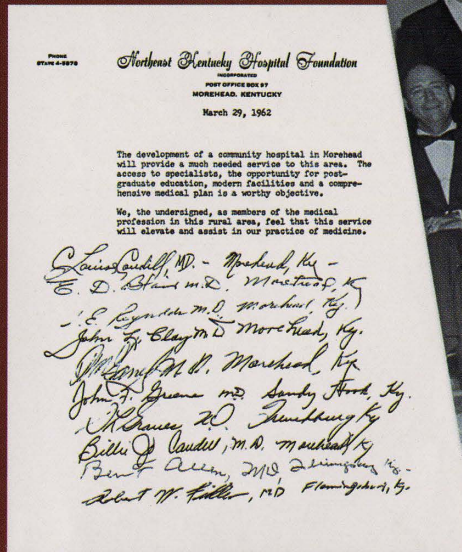 PHONE
STATE 4-5878
Northeast Kentucky Hospital Foundation
INCORPORATED
POST OFFICE BOX 87
MOREHEAD, KENTUCKY
March 29, 1962
The development of a community hospital in Morehead
will provide a much needed service to this area. The
access to specialists, the opportunity for post-
graduate education, modern facilities and a compre-
hensive medical plan is a worthy objective.
We, the undersigned, as members of the medical
profession in this rural area, feel that this service
will elevate and assist in our practice of medicine.
C Louise Caudill, MD. - Morehead, Ky -
E. D. M.D. Morehead, Ky
E. Reynolds M.D. Morehead, Ky.
John L. Clay MD Morehead, Ky.
M.D. Morehead, Ky
John F. Greene MD, Sandy Hook, Ky.
Graves MD Frenchburg Ky
Billie Jo Caudill, M.D. Morehead Ky
Ben F Allen, MD, Flemingsburg Ky-
Robert W. MD Flemingsburg, Ky.